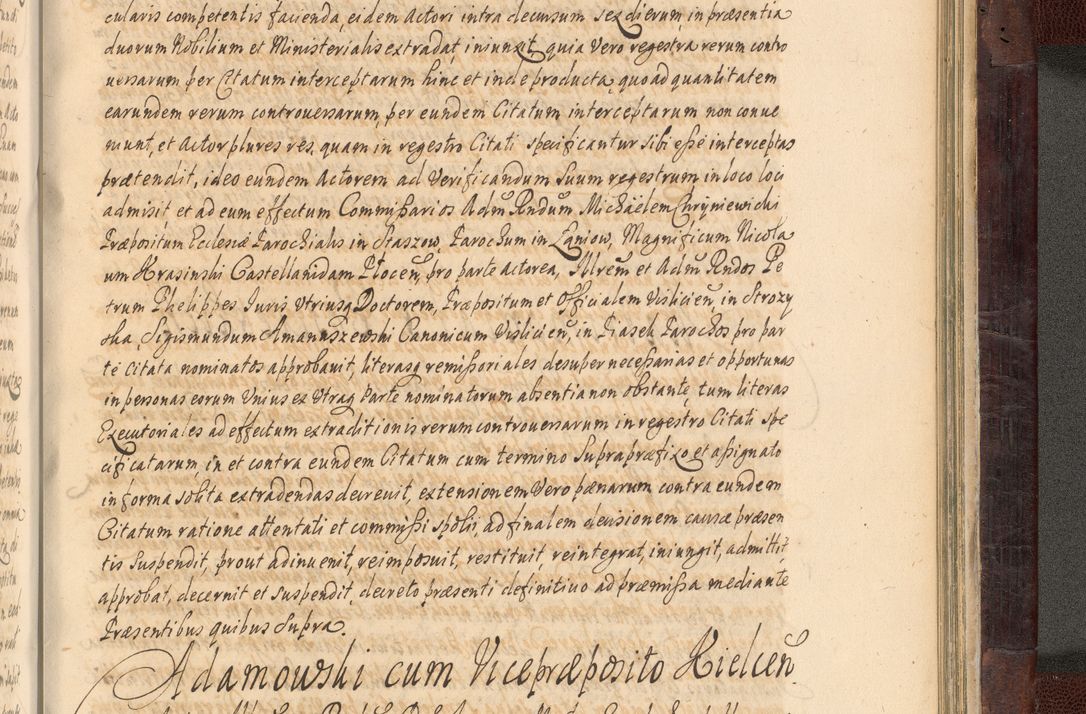 cularis competentis facienda, eidem Actori intra decursum sex dierum, in præsentia
duorum Nobilium et Ministerialis extradat, iniunxit, quia vero regestra rerum contro
uersarum per Citatum interceptarum hinc et inde producta, quo ad quantitatem
earundem rerum controuersarum, per eundem Citatum interceptarum non conue
niunt, et Actor plures res, quam in regestro Citati specificantur sibi esse interceptas
prætendit, ideo eundem Actorem ad Verificandum Suum regestrum in loco loci
admisit, et ad eum effectum Commissarios Adm̃ Rndum Michäelem Chryniewicki
Præpositum Ecclesiæ Parochialis in Staszow, Parochum in Zgniow, Magnificum Nicola
um Krasinski Castellanidam Plocen̄, pro parte Actorea, Illrem̃ et Adm̃ Rndos Pe
trum Phelippes Iuris Vtriusq Doctorem, Præpositum et Officialem Vislicien̄, in Strozy
ska, Sigismundum Amanuszewski Canonicum Vislicien̄, in Piasek Parochos pro par
te Citata nominatos approbauit, literasq remissoriales desuper necessarias et opportunas
in personas eorum Vnius ex Vtraq Parte nominatorum absentia non obstante, tum literas
Executoriales ad effectum extraditionis rerum controuersarum in regestro Citati spe
cificatarum, in et contra eundem Citatum cum termino Supra præfixo et assignato
in forma solita extradendas decreuit, extensionem Vero pænarum contra eundem
Citatum ratione attentati et commissi spolii, ad finalem decisionem causæ præsen
tis Suspendit, prout adinuenit, reimposuit, restituit, reintegrat, iniungit, admittit,
approbat, decernit et suspendit, decreto præsenti definitiuo ad præmissa mediante
Præsentibus quibus Supra.
Adamowski cum Vicepræposito Kielcen̄